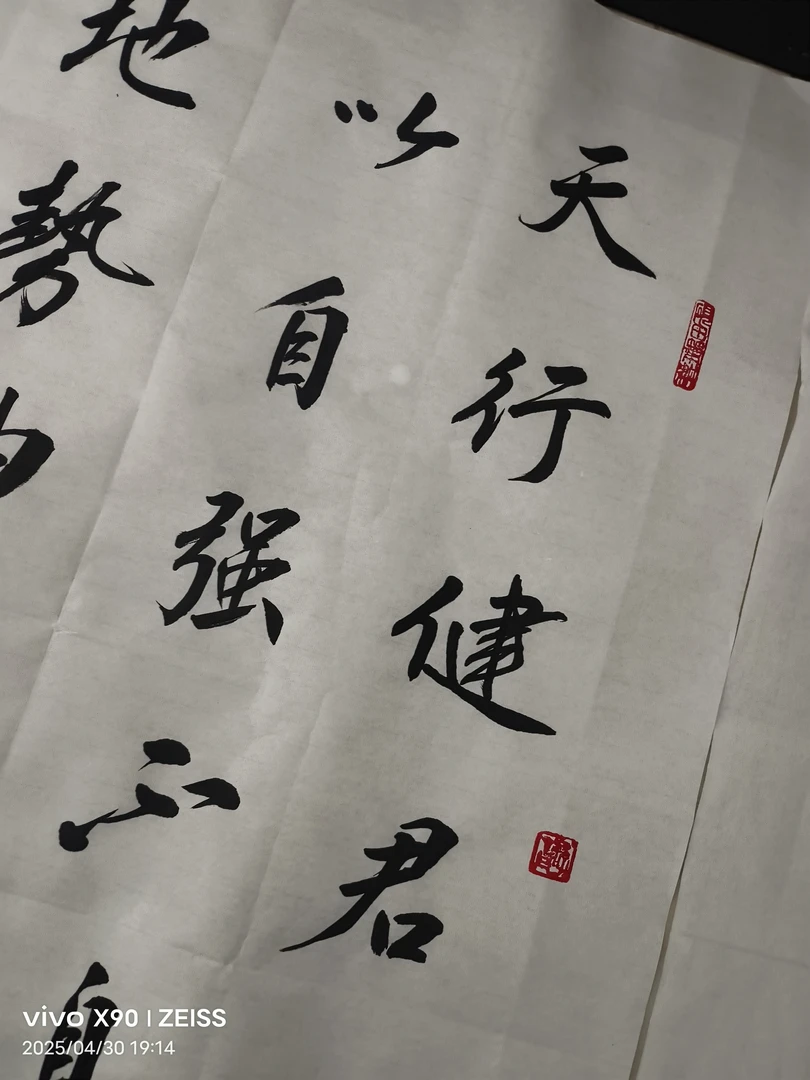 天行健君
以自强不自
地勢
vivo X90 | ZEISS
2025/04/30 19:14